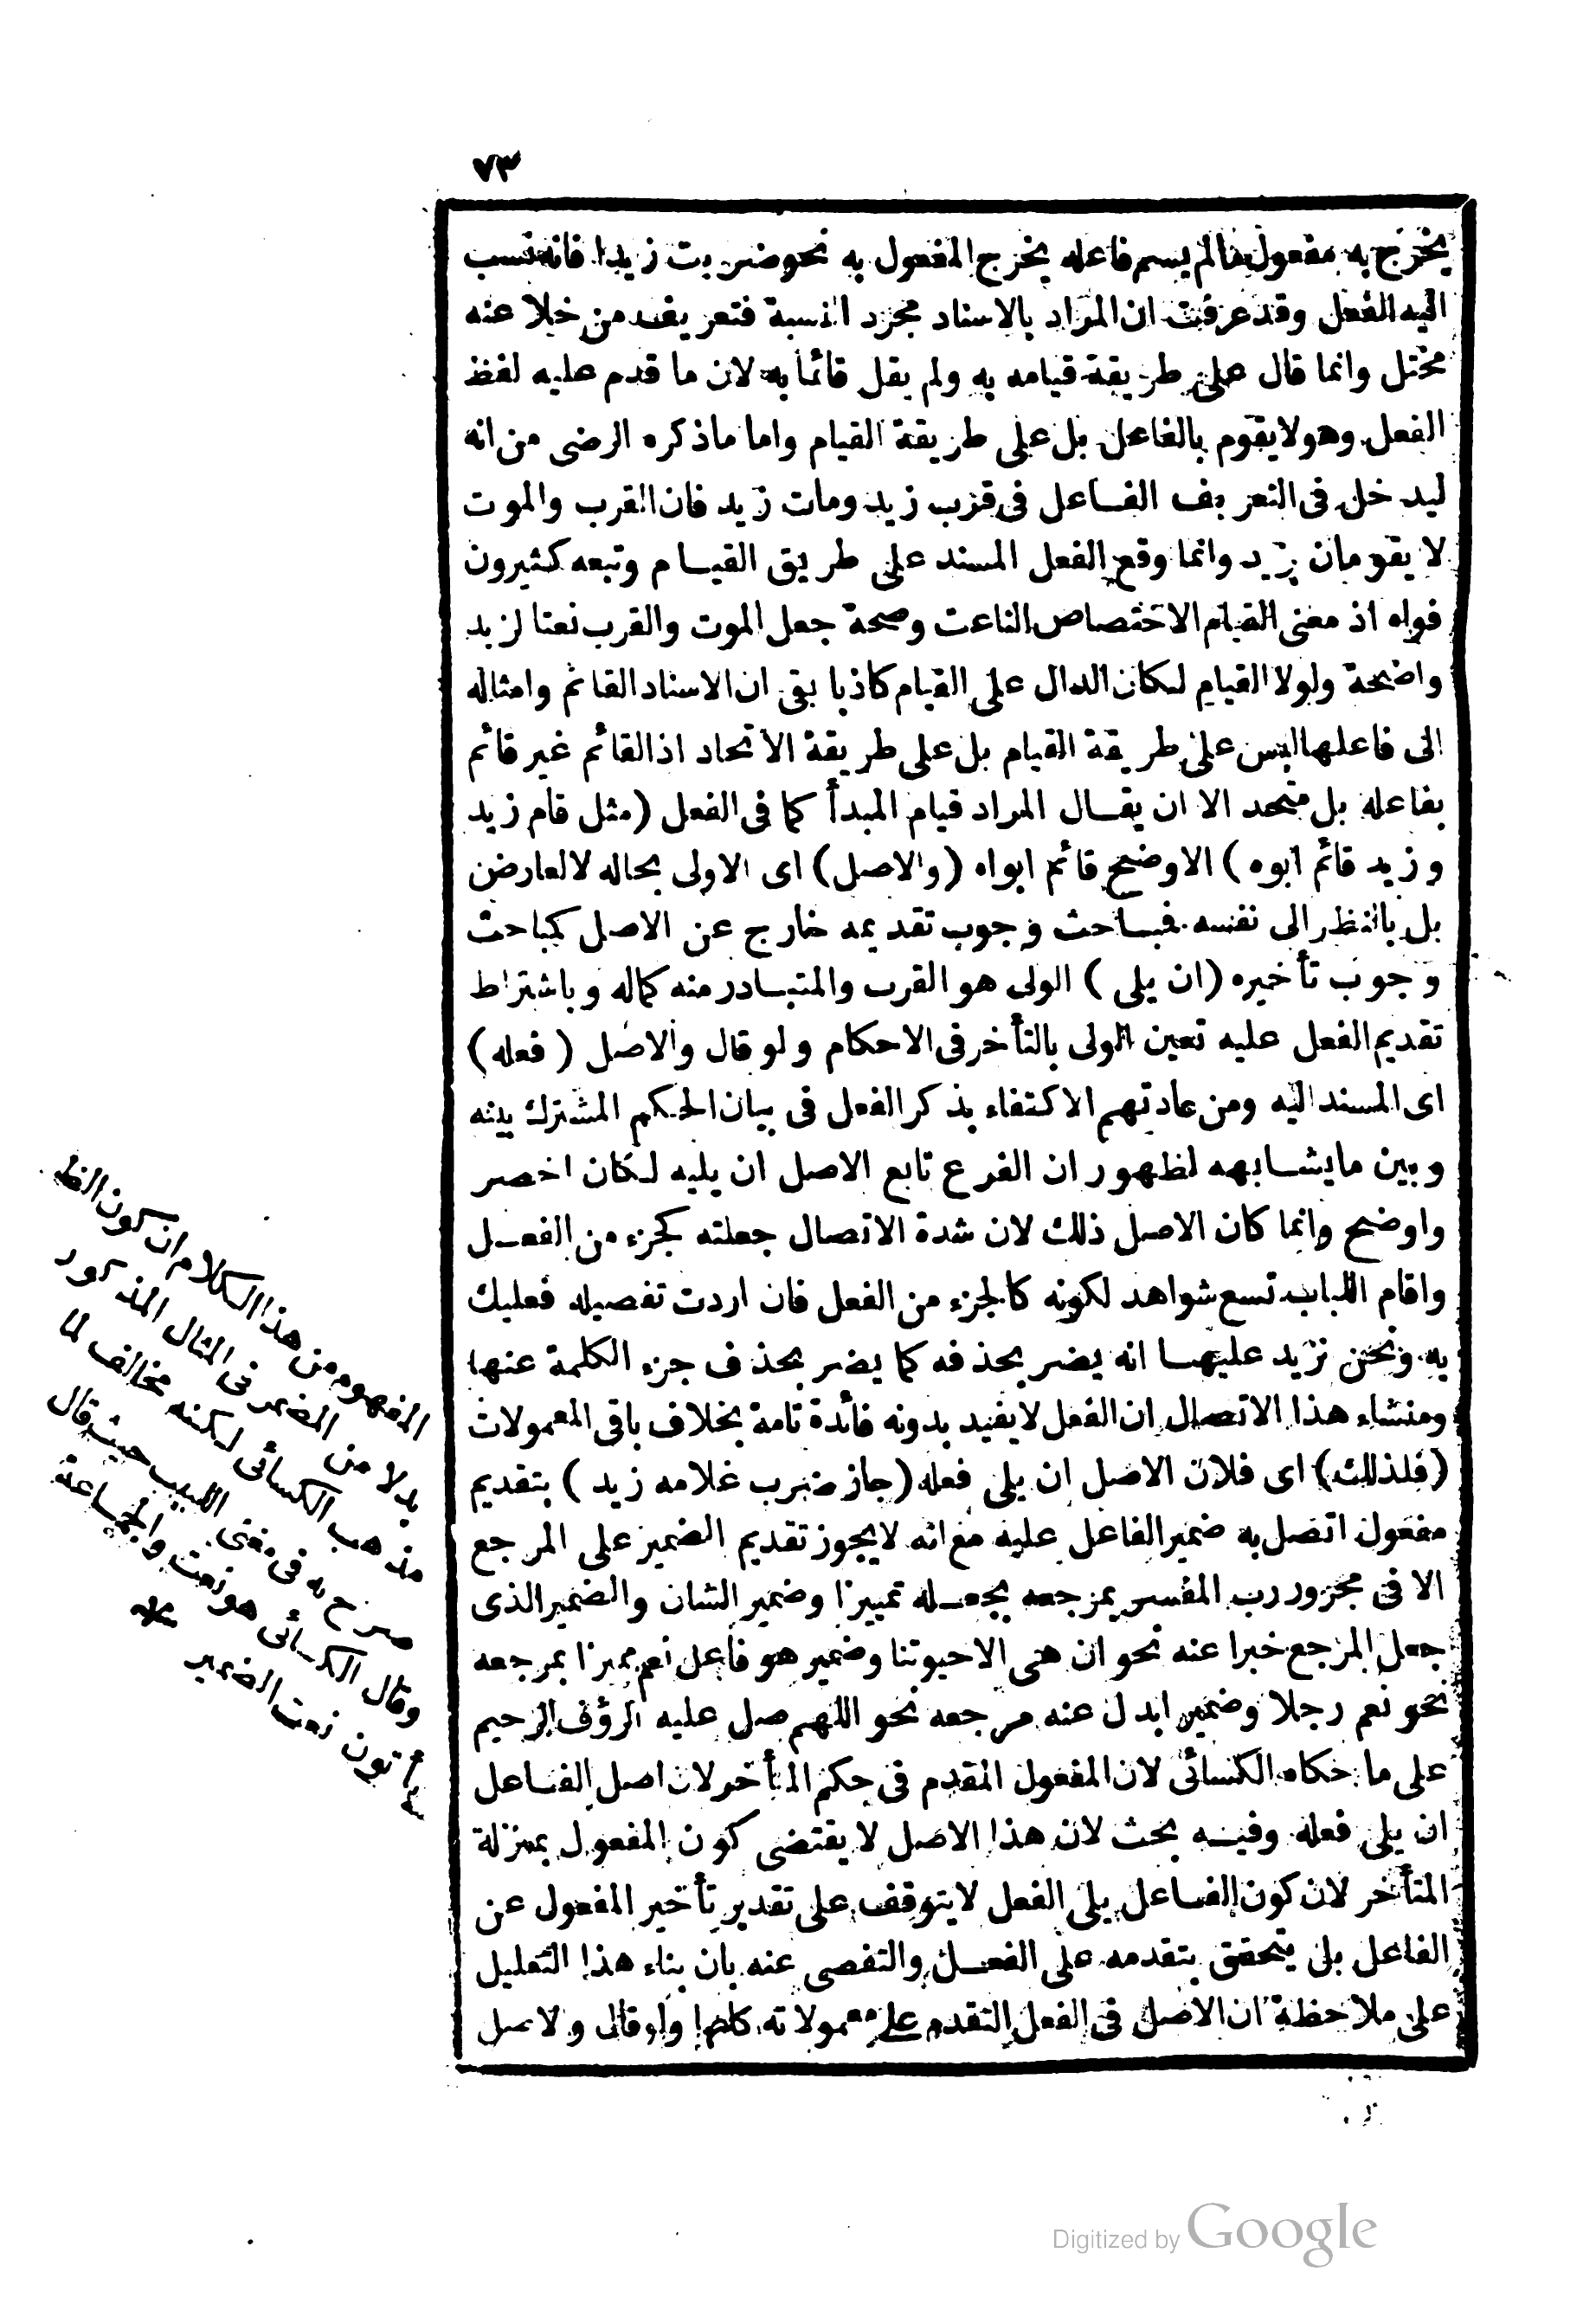 ٧٣
يخرج به مفعول مالم يسم فاعله يخرج المفعول به نحو ضربت زيدا فانه نسب
اليه الفعل وقد عرفت ان المراد بالاسناد مجرد النسبة فتعريف من خلا عنه
مختل وانما قال على طريقة قيامه به ولم يقل قائما به لان ما قدم عليه لفظ
الفعل وهو لا يقوم بالفاعل بل على طريقة القيام واما ماذكره الرضى من انه
ليدخل فى التعريف الفاعل فى قرب زيد ومات زيد فان القرب والموت
لا يقومان بزيد وانما وقع الفعل المسند على طريق القيام وتبعه كثيرون
فواه اذ معنى القيام الاختصاص الناعت وصحة جعل الموت والقرب نعتا لزيد
واضحة ولولا القيام لكان الدال على القيام كاذبا بقى ان الاسناد القائم وامثاله
الى فاعلها ليس على طريقة القيام بل على طريقة الاتحاد اذ القائم غير قائم
بفاعله بل متحد الا ان يقال المراد قيام المبدأ كما فى الفعل (مثل قام زيد
وزيد قائم ابوه) الاوضح قائم ابواه (والاصل) اى الاولى بحاله لا لعارض
بل بالنظر الى نفسه فمباحث وجوب تقديمه خارج عن الاصل كمباحث
وجوب تأخيره (ان يلى) الولى هو القرب والمتبادر منه كماله وباشتراط
تقديم الفعل عليه تعين الولى بالتأخر فى الاحكام ولو قال والاصل (فعله)
اى المسند اليه ومن عادتهم الاكتفاء بذكر الفعل فى بيان الحكم المشترك بينه
وبين مايشابهه لظهور ان الفرع تابع الاصل ان يليه لكان اخصر
واوضح وانما كان الاصل ذلك لان شدة الاتصال جعلته كجزء من الفعل
واقام اللباب تسع شواهد لكونه كالجزء من الفعل فان اردت تفصيله فعليك
به ونحن نزيد عليها انه يضر بحذفه كما يضر بحذف جزء الكلمة عنها
ومنشاء هذا الاتصال ان الفعل لا يفيد بدونه فائدة تامة بخلاف باقى المعمولات
(فلذلك) اى فلان الاصل ان يلى فعله (جاز ضرب غلامه زيد) بتقديم
مفعول اتصل به ضمير الفاعل عليه مع انه لا يجوز تقديم الضمير على المرجع
الا فى مجرور رب المفسر بمرجعه بجعله تمييزا وضمير الشان والضمير الذى
جعل المرجع خبرا عنه نحو ان هى الا حيوتنا وضمير هو فاعل نعم مميزا بمرجعه
نحو نعم رجلا وضمير ابدل عنه مرجعه نحو اللهم صل عليه الرؤف الرحيم
على ما حكاه الكسائى لان المفعول المقدم فى حكم المتأخر لان اصل الفاعل
ان يلى فعله وفيه بحث لان هذا الاصل لا يقتضى كون المفعول بمنزلة
المتأخر لان كون الفاعل يلى الفعل لا يتوقف على تقدير تأخير المفعول عن
الفاعل بل يتحقق بتقدمه على الفعل والتفصى عنه بان بناء هذا التعليل
على ملاحظة ان الاصل فى الفعل التقدم على معمولاته كلها ولو قال ولاصل
المفهوم من هذا الكلام ان كون الظ
بدلا من الضمير فى المثال المذكور
مذهب الكسائى لكنه مخالف لما
صرح به فى مغنى اللبيب حيث قال
وقال الكسائى هو نعت والجماعة
يأتون نعت الضمير
Digitized by Google